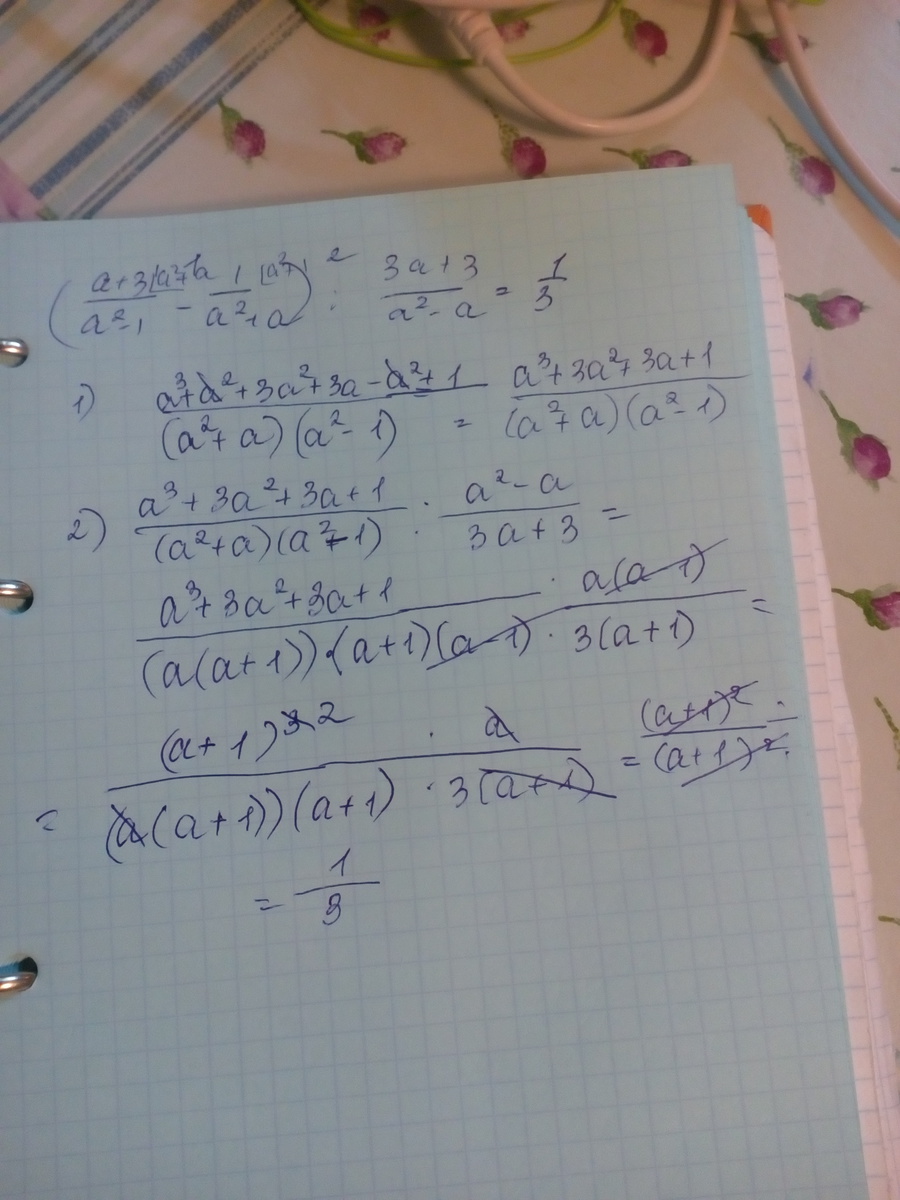 (a+3|a²+a / a²-1 - 1|a²-1 / a²+a)² : 3a+3 / a²-a = 1/3
1) a³+a²+3a²+3a-a²+1 / (a²+a)(a²-1) = a³+3a²+3a+1 / (a²+a)(a²-1)
2) a³+3a²+3a+1 / (a²+a)(a²-1) · a²-a / 3a+3 =
a³+3a²+3a+1 · a(a-1) / (a(a+1))·(a+1)(a-1) · 3(a+1) =
= (a+1)³ ² · a / (a(a+1))(a+1) · 3(a+1) = (a+1)² / (a+1)²
= 1/3